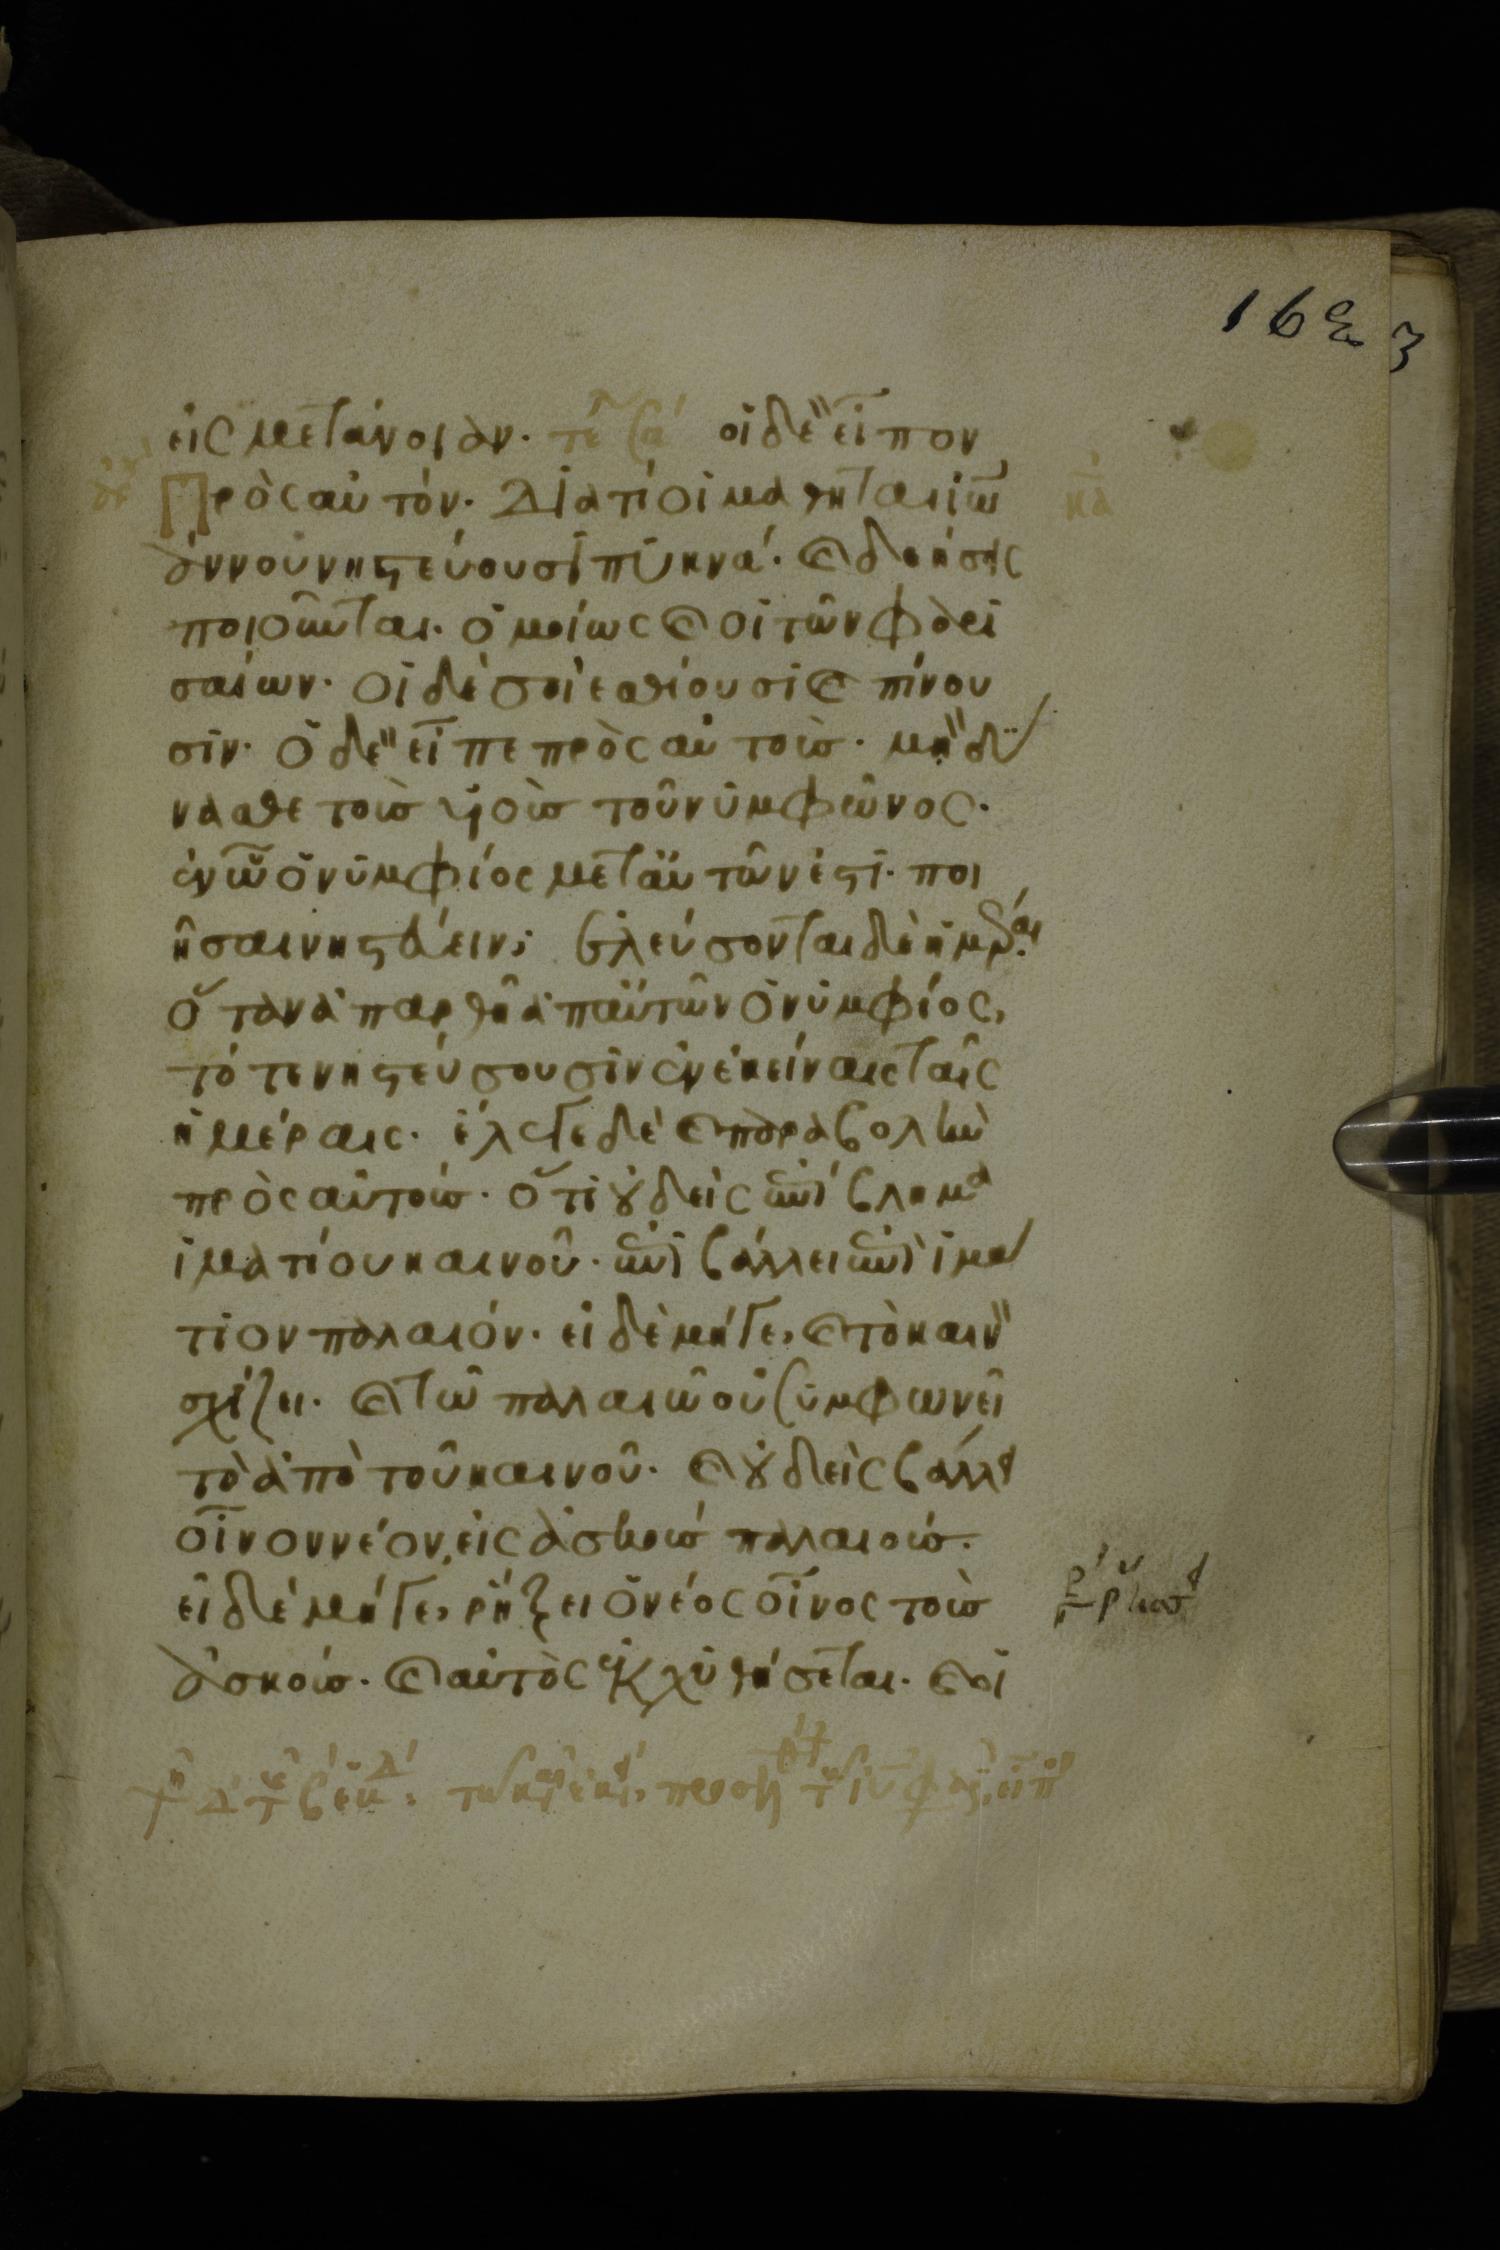 163
εἰς μετάνοιαν. οἱ δὲ εἶπον
Πρὸς αὐτόν. Διατί οἱ μαθηταὶ ἰω
άννου νηστεύουσϊ πυκνά. ϗ δεήσεις
ποιοῦνται. ὁμοίως ϗ οἱ τῶν φαρι
σαίων. οἱ δὲ σοὶ ἐσθίουσι ϗ πίνου
σϊν. ὁ δὲ εἶπε πρὸς αὐτούς. μὴ δύ
νασθε τοὺς υἱοὺς τοῦ νυμφῶνος.
ἐν ῷ ὁ νυμφίος μετ αὐτῶν ἐστι. ποι
ῆσαι νηστεύειν; ἐλεύσονται δὲ ἡμέραι.
ὅταν ἀπαρθῇ ἀπ αὐτῶν ὁ νυμφίος,
τότε νηστεύσουσϊν ἐν ἐκείναις ταῖς
ἡμέραις. ἔλεγε δὲ ϗ παραβολὴν
πρὸς αὐτούς. ὅτι οὐδεὶς ἐπίβλημα
ἱματίου καινοῦ. ἐπιβάλλει ἐπὶ ἱμά
τιον παλαιόν. εἰ δὲ μήγε, ϗ τὸ καινὸν
σχίζει. ϗ τῷ παλαιῷ οὐ συμφωνεῖ
τὸ ἀπὸ τοῦ καινοῦ. ϗ οὐδεὶς βάλλει
οἶνον νέον, εἰς ἀσκοὺς παλαιούς.
εἰ δὲ μήγε, ῥήξει ὁ νέος οἶνος τοὺς
ἀσκούς. ϗ αὐτὸς ἐκχυθήσεται. ϗ οἱ